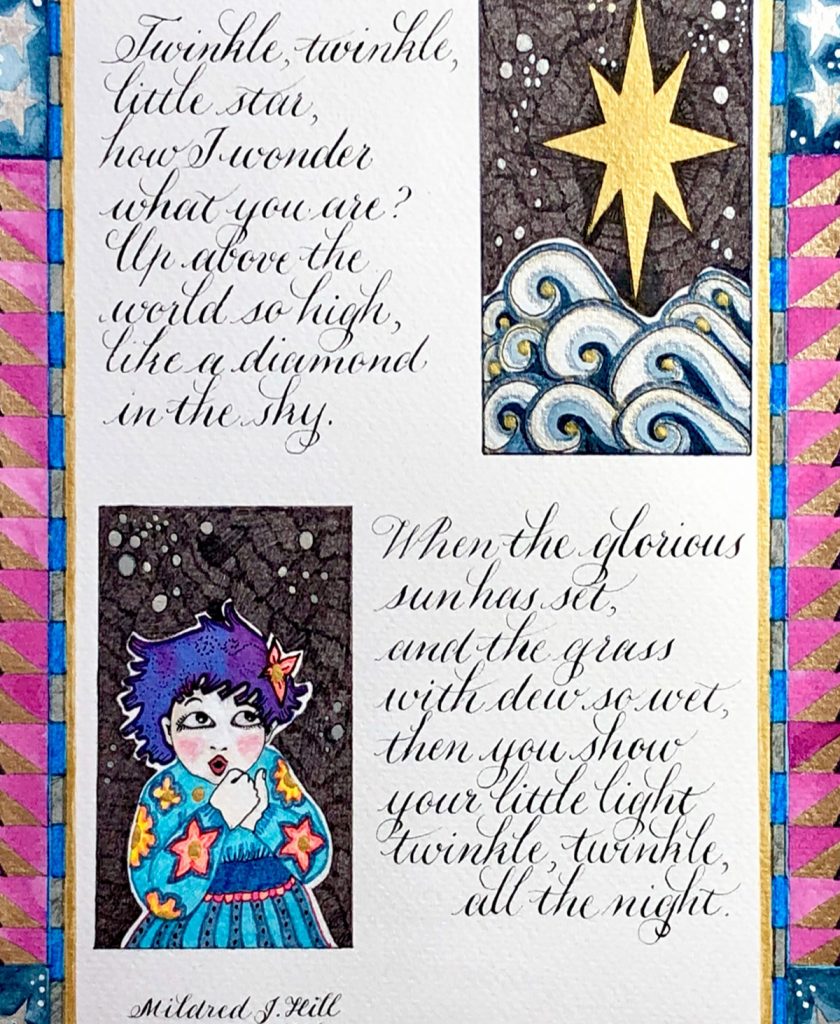 Twinkle, twinkle,
little star,
how I wonder
what you are?
Up above the
world so high,
like a diamond
in the sky.
When the glorious
sun has set,
and the grass
with dew so wet,
then you show
your little light
twinkle, twinkle,
all the night.
Mildred J. Hill